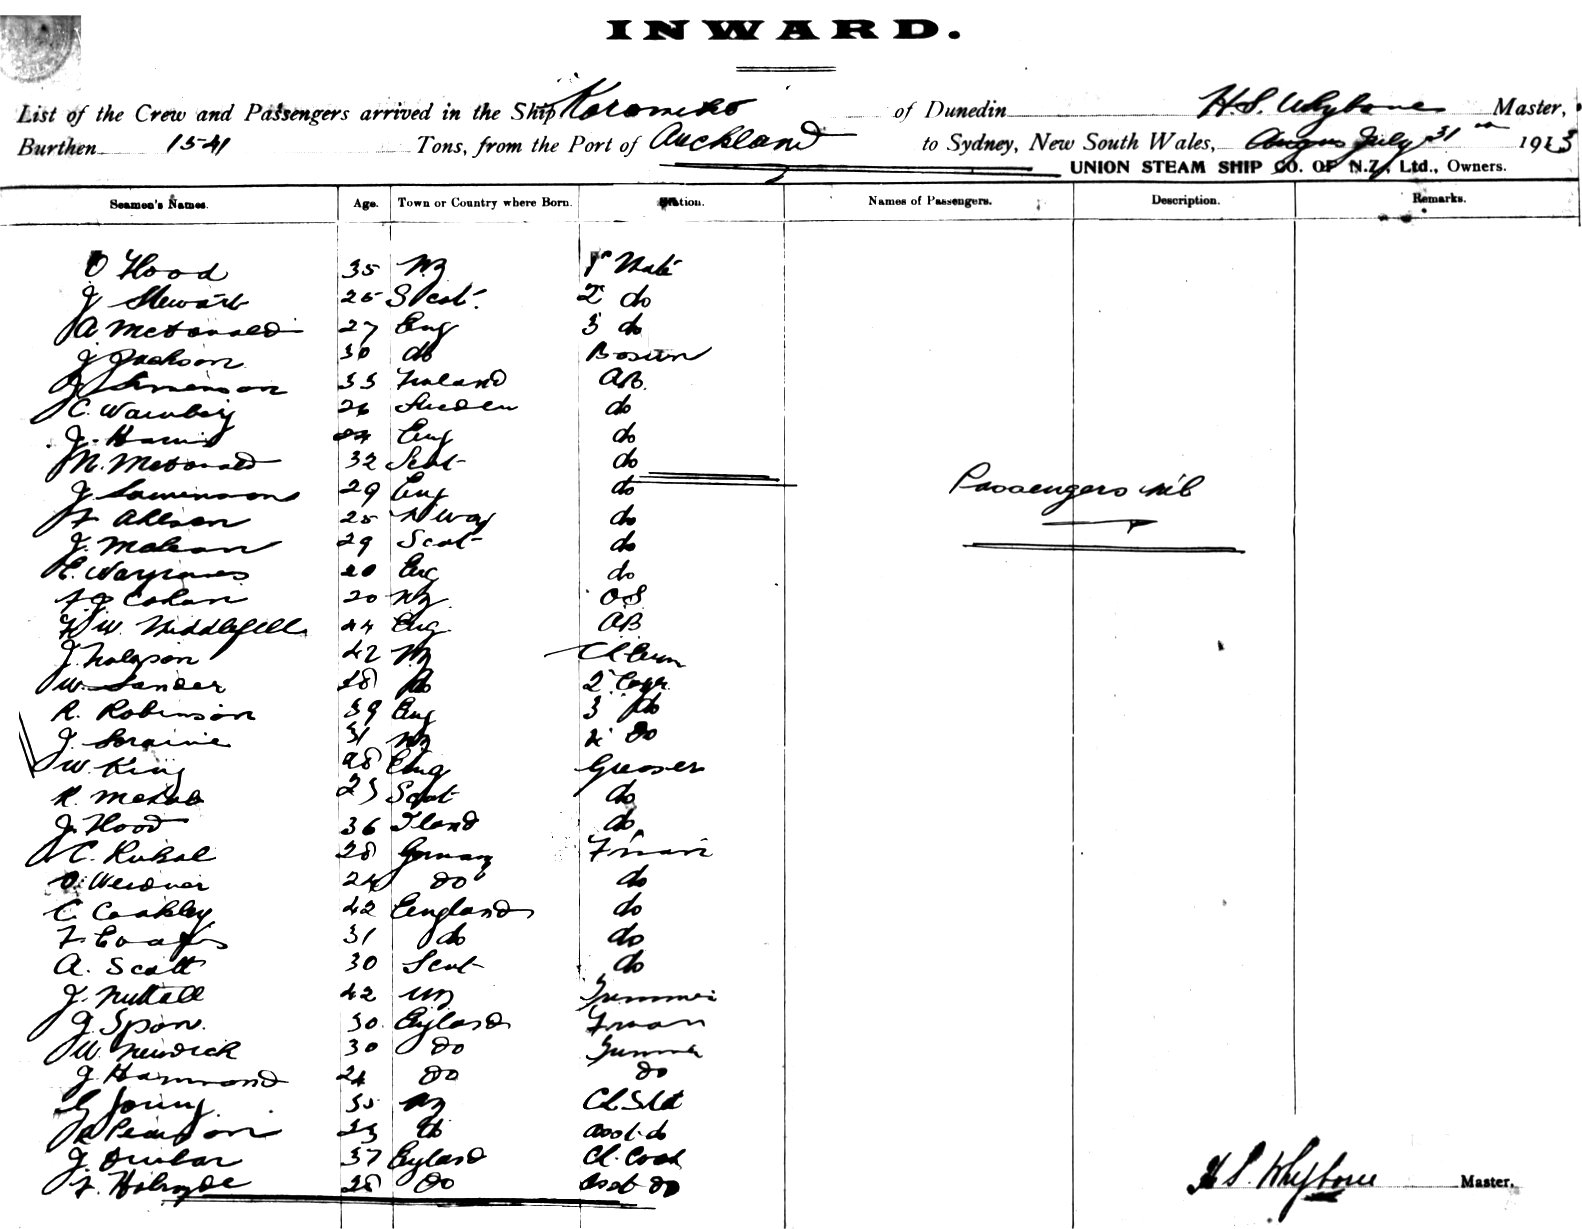 INWARD.
List of the Crew and Passengers arrived in the Ship Koromiko of Dunedin H.S. Whybone Master,
Burthen 1541 Tons, from the Port of Auckland to Sydney, New South Wales, July 31 1913
UNION STEAM SHIP CO. OF N.Z., Ltd., Owners.
Seamen's Names. Age. Town or Country where Born. Station. Names of Passengers. Description. Remarks.
Hood 35 NZ 1st Mate
J Stewart 25 Scot. 2 do
A McDonald 27 Eng 3 do
J Jackson 30 do Bosun
33 Finland AB.
C. 26 Sweden do
J. Harris Eng do
M. McDonald 32 Scot do
J 29 Eng do
Passengers nil
F 25 N Way do
J. McLean 29 Scot do
E. 20 Eng do
F J Cohan 20 NZ OS
W. Middlefell 44 Eng AB
J. 42 NZ
W. Sander 28 do 2 Engr
R. Robinson 39 Eng 3 do
J. Loraine 31 NZ 4 do
W. King 28 Eng Greaser
R. McNab 23 Scot do
J. Hood 36 Iland do
C. Kukal 28 Germany Fireman
O. Weidner 24 do do
C Coakley 42 England do
F Coates 31 do do
A. Scott 30 Scot do
J. Nuttall 42 NZ Trimmer
J. Spow. 30 England Fireman
W. Newdick 30 do Trimmer
J Hammond 24 do do
G Young 35 NZ Ch Std
R Pearson 23 do asst do
J. Dunbar 37 England Ch. Cook
F. Holroyde 28 do asst do
H S. Whybone Master.